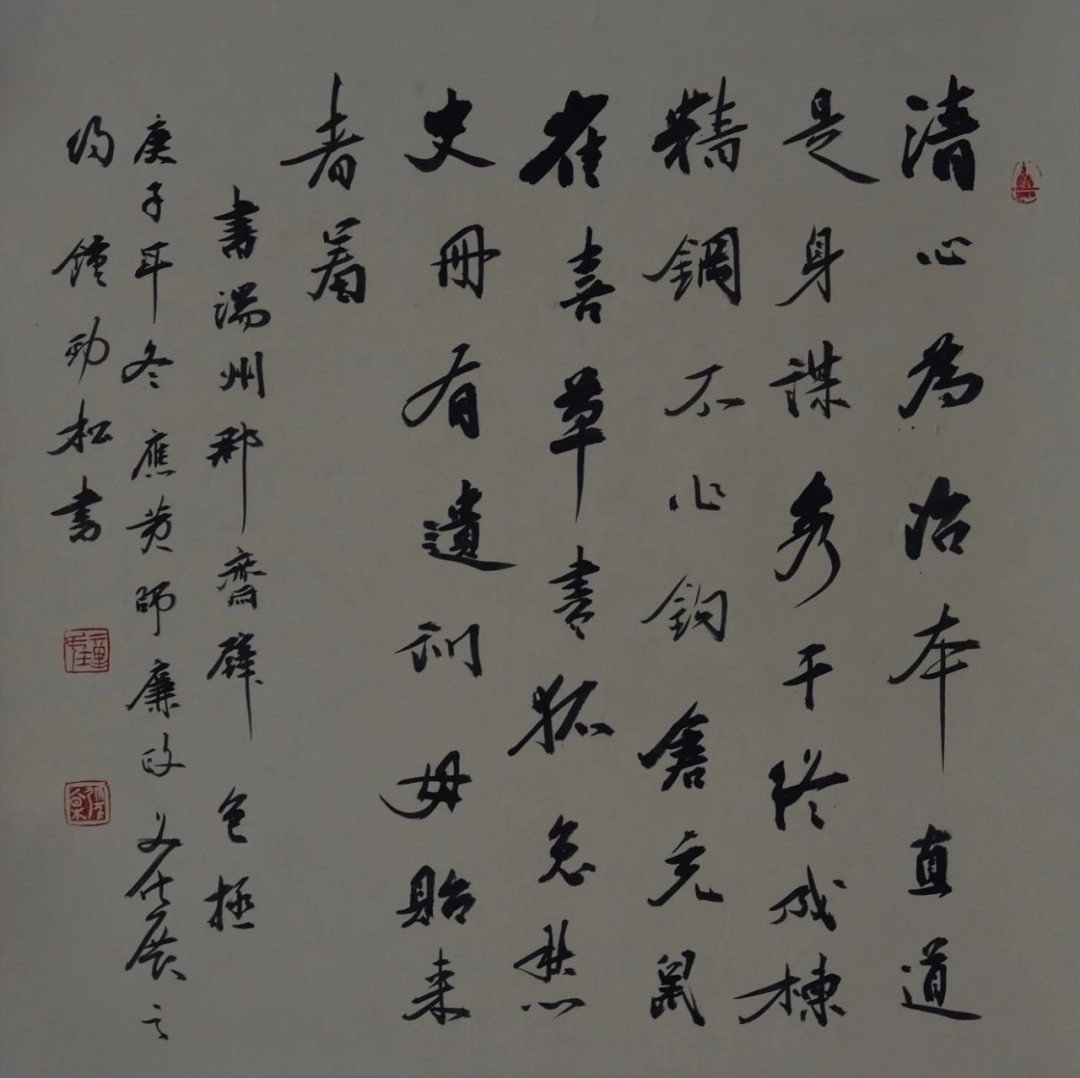 清心為治本直道
是身謀秀干終成棟
精鋼不作鈎倉充鼠
雀喜草盡狐兔愁
史冊有遺訓毋貽来
者羞
書端州郡齋壁 包拯
庚子年冬應黄師廉政文化展之
约鍾劲松書